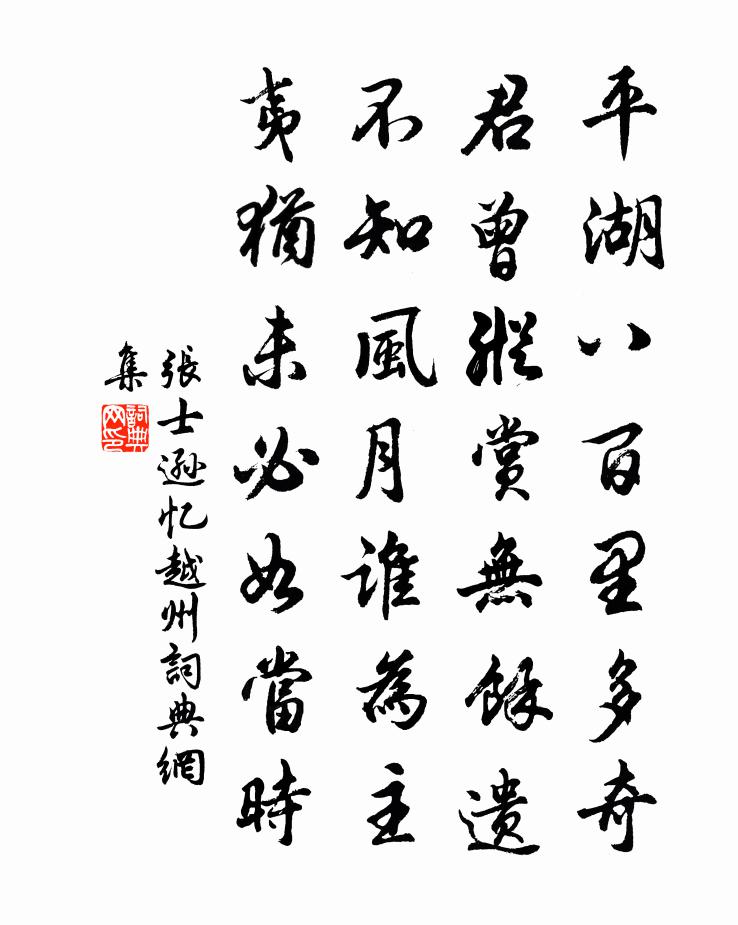 平湖八百里多奇
君曾縱賞無餘遺
不知風月誰為主
夷猶未必如當時
張士遜忆越州詞典網
集
詞典網印